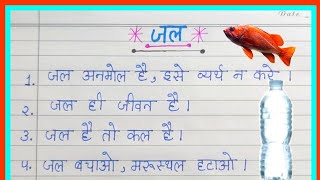 Date
* जल *
1. जल अनमोल है, इसे व्यर्थ न करे ।
2. जल ही जीवन है ।
3. जल है तो कल है ।
४. जल बचाओ, मरूस्थल हटाओ ।